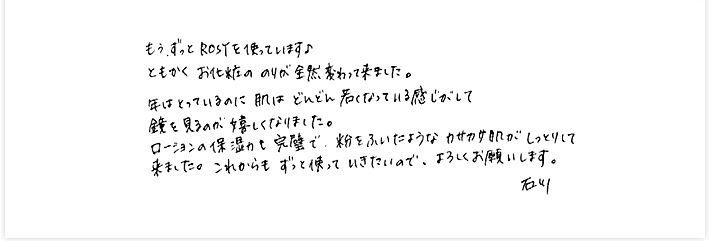 もう、ずっとROSYを使っています♪
ともかく お化粧の のりが全然変わって来ました。
年はとっているのに 肌は どんどん若くなっている感じがして
鏡を見るのが嬉しくなりました。
ローションの保湿力も完璧で、粉をふいたような カサカサ肌がしっとりして
来ました。これからも ずっと使って いきたいので、よろしくお願いします。
石川